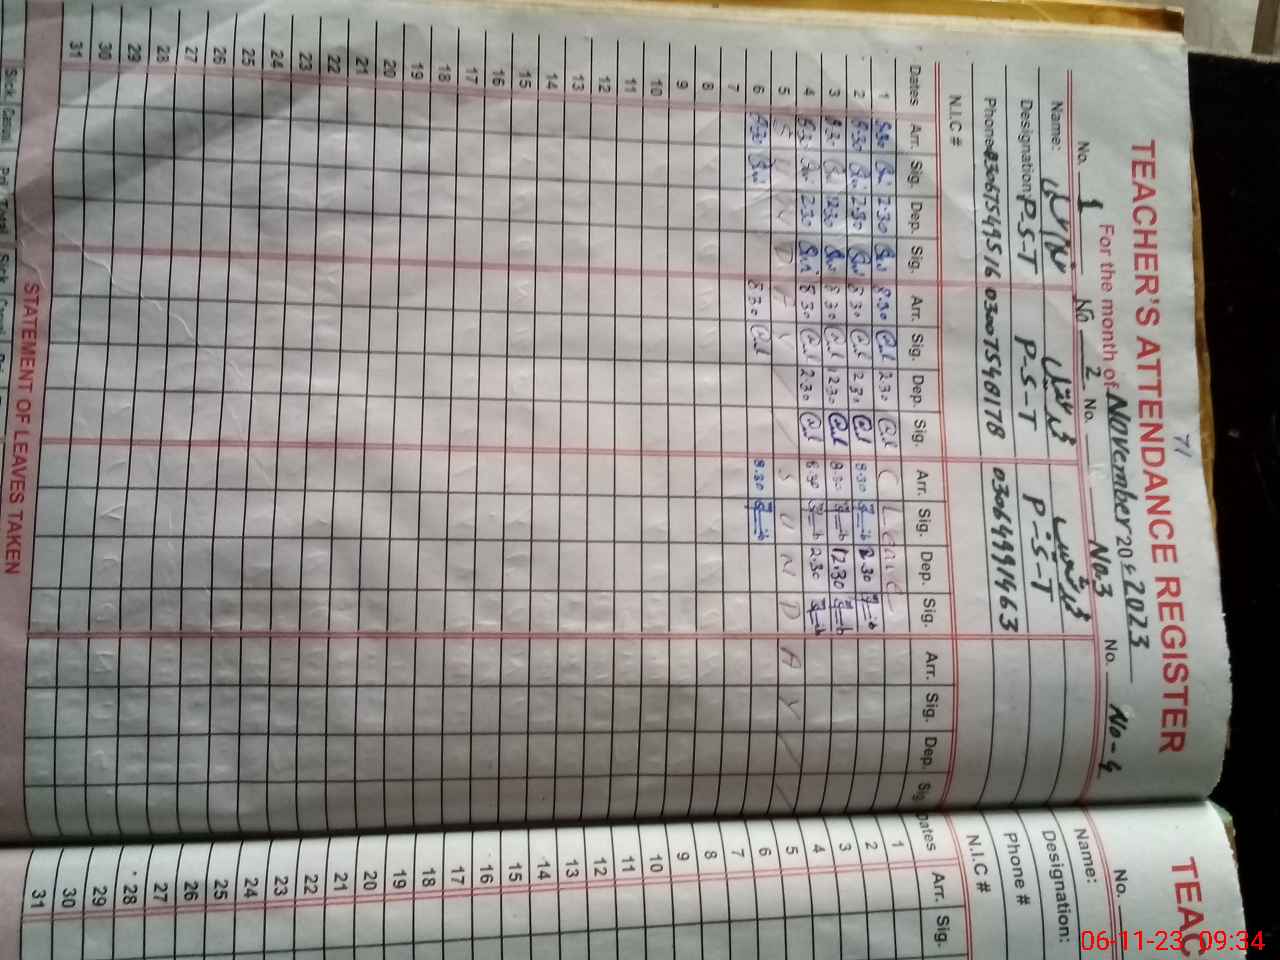 71
TEACHER'S ATTENDANCE REGISTER
For the month of November 2023
No. 1 No 2 No. No.3 No. No-4
Name:
Designation: P-S-T P-S-T P-S-T
Phone 03067549516 03007548178 03064991463
N.I.C #
Dates Arr. Sig. Dep. Sig. Arr. Sig. Dep. Sig. Arr. Sig. Dep. Sig. Arr. Sig. Dep. Sig
1 8.30 2.30 8.30 2.30 C Leave
2 8.30 2.30 8.30 2.30 8.30 2.30
3 8.30 12.30 8.30 12.30 8.30 12.30
4 8.30 2.30 8.30 2.30 8.30 2.30
5 S U N D A Y S U N D A Y
6 8.30 8.30 8.30
7
8
9
10
11
12
13
14
15
16
17
18
19
20
21
22
23
24
25
26
27
28
29
30
31
STATEMENT OF LEAVES TAKEN
Sick Casul. Pri. Total Sick
TEAC
No.
Name:
Designation:
Phone #
N.I.C #
Dates Arr. Sig.
1
2
3
4
5
6
7
8
9
10
11
12
13
14
15
16
17
18
19
20
21
22
23
24
25
26
27
28
29
30
31
06-11-23 09:34